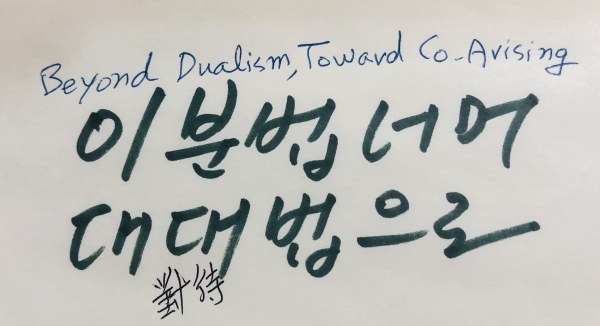 Beyond Dualism, Toward Co-Arising
이분법 너머
대대법으로
對待